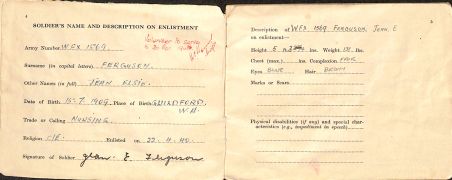 4
SOLDIER'S NAME AND DESCRIPTION ON ENLISTMENT
Army Number WFX 1569.
Surname (in capital letters) FERGUSON.
Other Names (in full) JEAN ELSIE.
Date of Birth 15.7.1909. Place of Birth GUILDFORD. W.A.
Trade or Calling NURSING.
Religion C/E. Enlisted on 22.11.40.
Signature of Soldier Jean E. Ferguson
5
Description of WFX 1569 FERGUSON, JEAN, E
on enlistment—
Height 5 ft. ins. Weight lbs.
Chest (max.) ins. Complexion FAIR
Eyes BLUE Hair BROWN
Marks or Scars
Physical disabilities (if any) and special char-
acteristics (e.g., impediment in speech)